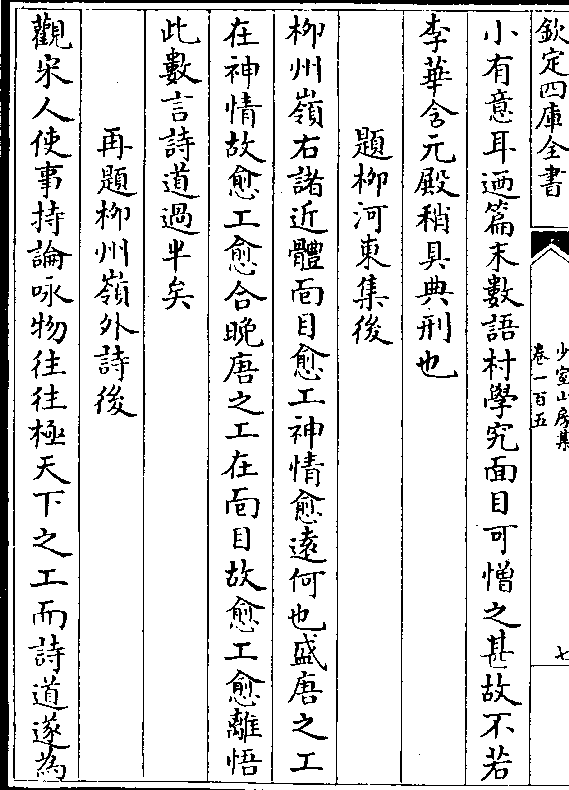 欽定四庫全書
少室山房集
卷一百五
七
小有意耳迺篇末數語村學究面目可憎之甚故不若
李華含元殿稍具典刑也
題柳河東集後
柳州嶺右諸近體面目愈工神情愈遠何也盛唐之工
在神情故愈工愈合晚唐之工在面目故愈工愈離悟
此數言詩道過半矣
再題柳州嶺外詩後
觀宋人使事持論咏物往往極天下之工而詩道遂為